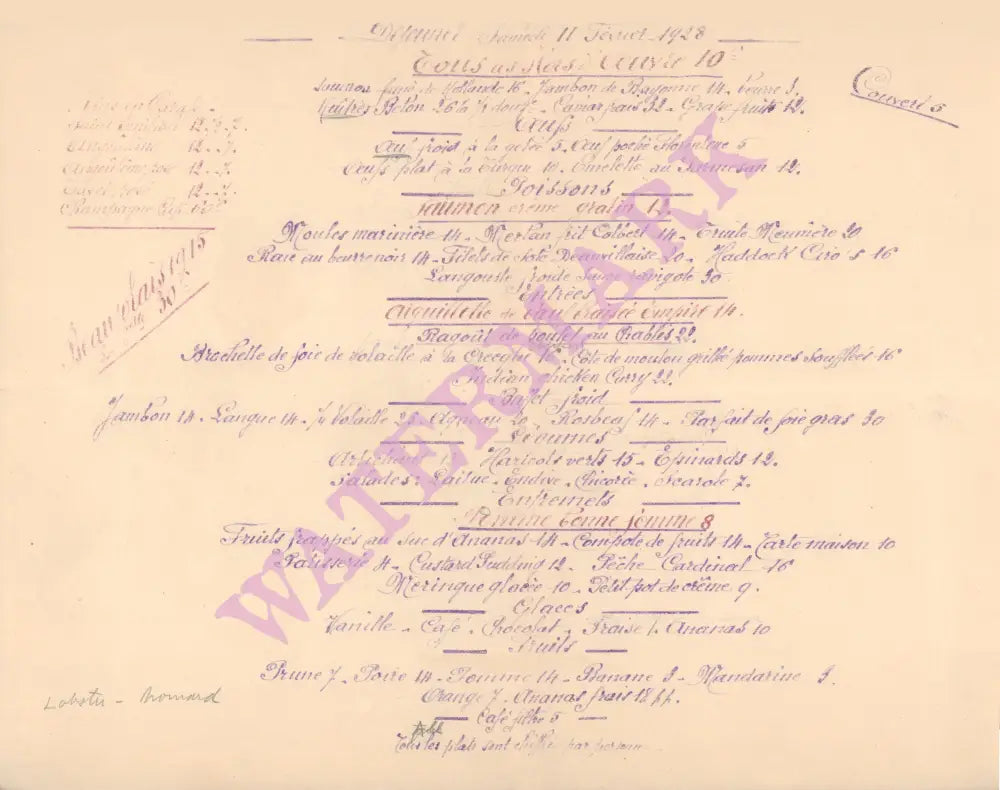 Déjeuner Samedi 11 Février 1928
Tous les Hors d'Œuvre 10
Couvert 5
Saumon fumé de Hollande 16 - Jambon de Bayonne 14 - beurre 3.
Huîtres Belon 26 la ½ douz - Caviar frais 32 - Grape fruits 12.
Œufs
Œuf froid à la gelée 5. Œuf poché Florentine 5
Œufs plat à la Turque 10 - Omelette au Parmesan 12.
Vins en Carafe
12. 7.
12. 7.
rose 12. 7.
rosé 12. 7.
Champagne
Poissons
Saumon crème gratin 12
Moules marinière 14 - Merlan frit Colbert 14 - Truite Meunière 20
Raie au beurre noir 14 - Filets de Sole Deauvillaise 20 - Haddock Ciro's 16
Langouste froide sauce ravigote 30
Beaujolais 1915
30
Entrées
Aiguillette de bœuf braisée Empire 14.
Ragoût de poulet au Chablis 22.
Brochette de foie de volaille à la 16 - Côte de mouton grillé pommes soufflées 16
Indian chicken Curry 22.
Buffet froid
Jambon 14 - Langue 14 - ¼ Volaille 25 - Agneau 20 - Rosbeaf 14 - Parfait de foie gras 30
Légumes
Artichaut - Haricots verts 15 - Epinards 12.
Salades: Laitue - Endive - Chicorée - Scarole 7.
Entremets
Pomme bonne femme 8
Fruits frappés au suc d'Ananas 14 - Compote de fruits 14 - Tarte maison 10
Patisserie 4 - Custard Pudding 12 - Pêche Cardinal 16
Meringue glacée 10 - Petit pot de crême 9.
Glaces
Vanille - Café - Chocolat - Fraise - Ananas 10
Fruits
Prune 7 - Poire 14 - Pomme 14 - Banane 3 - Mandarine 3.
Orange 7 - Ananas frais 18
Café filtre 5
Tous les plats sont chiffrés par personne
Lobster - Homard
WATERMARK